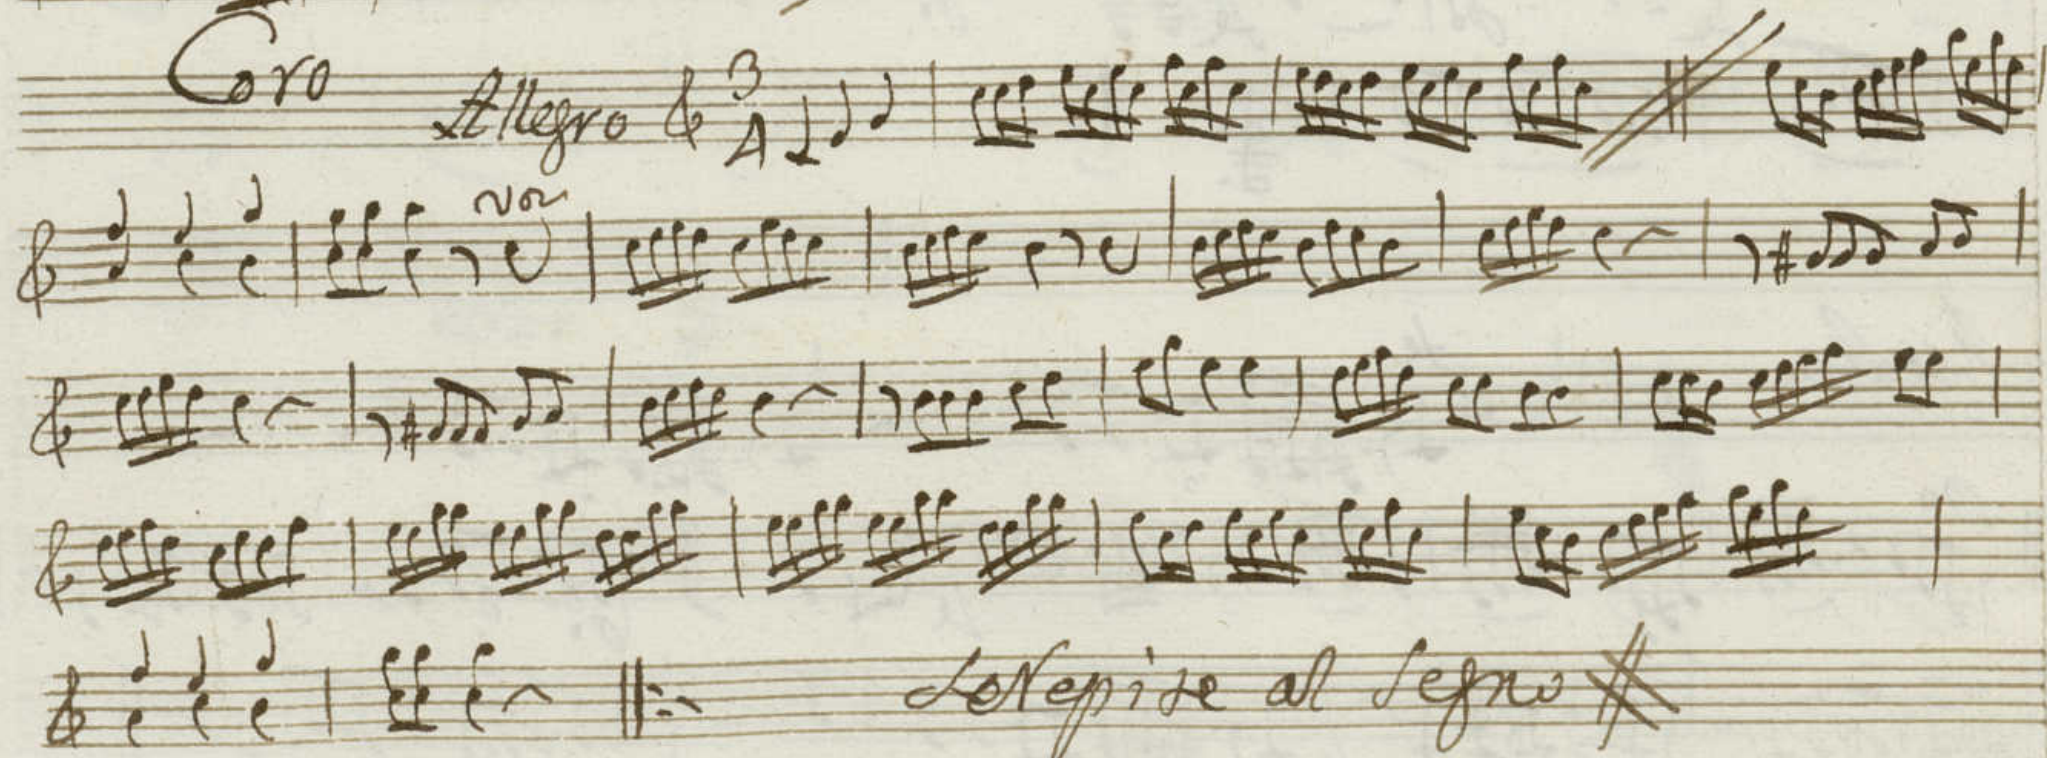 Coro Allegro 3 4
voz
Se Repite al Segno